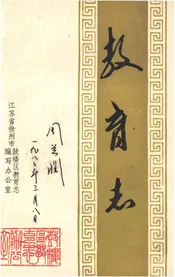 教育志
周
一九八年三月八日
江苏省徐州市鼓楼区教育志
编写办公室